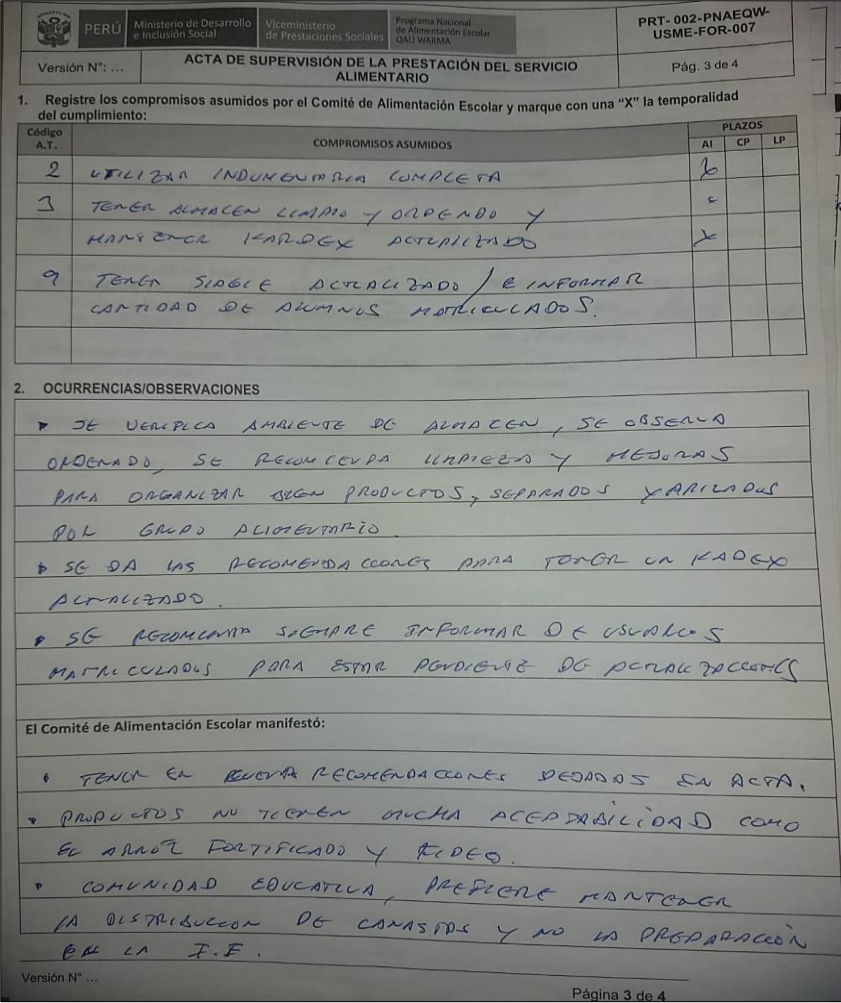 PERÚ Ministerio de Desarrollo e Inclusión Social Viceministerio de Prestaciones Sociales Programa Nacional de Alimentación Escolar QALI WARMA
PRT- 002-PNAEQW-USME-FOR-007
Versión N°: ...
ACTA DE SUPERVISIÓN DE LA PRESTACIÓN DEL SERVICIO ALIMENTARIO
Pág. 3 de 4
1. Registre los compromisos asumidos por el Comité de Alimentación Escolar y marque con una “X” la temporalidad
del cumplimiento:
Código A.T. COMPROMISOS ASUMIDOS PLAZOS
AI CP LP
2 UTILIZAR INDUMENTARIA COMPLETA X
3 TENER ALMACEN LIMPIO Y ORDENDO Y
MANTENER KARDEX ACTUALIZADO X
9 TENER SIAGIE ACTUALIZADO / E INFORMAR
CANTIDAD DE ALUMNOS MATRICULADOS.
2. OCURRENCIAS/OBSERVACIONES
SE VERIFICA AMBIENTE DE ALMACEN, SE OBSERVA
ORDENADO, SE RECOMIENDA LIMPIEZA Y MEJORAS
PARA ORGANIZAR BIEN PRODUCTOS, SEPARADOS Y APILADOS
POR GRUPO ALIMENTARIO.
SE DA LAS RECOMENDACIONES PARA TENER UN KADEX
ACTUALIZADO.
SE RECOMIENDA SIEMPRE INFORMAR DE USUARIOS
MATRICULADOS PARA ESTAR PENDIENTE DE ACTUALIZACIONES
El Comité de Alimentación Escolar manifestó:
TENER EN CUENTA RECOMENDACIONES DEJADOS EN ACTA.
PRODUCTOS NO TIENEN MUCHA ACEPTABILIDAD COMO
EL ARROZ FORTIFICADO Y FIDEO.
COMUNIDAD EDUCATIVA, PREFIERE MANTENER
LA DISTRIBUCION DE CANASTAS Y NO LA PREPARACIÓN
EN LA I.E.
Versión N° ...
Página 3 de 4